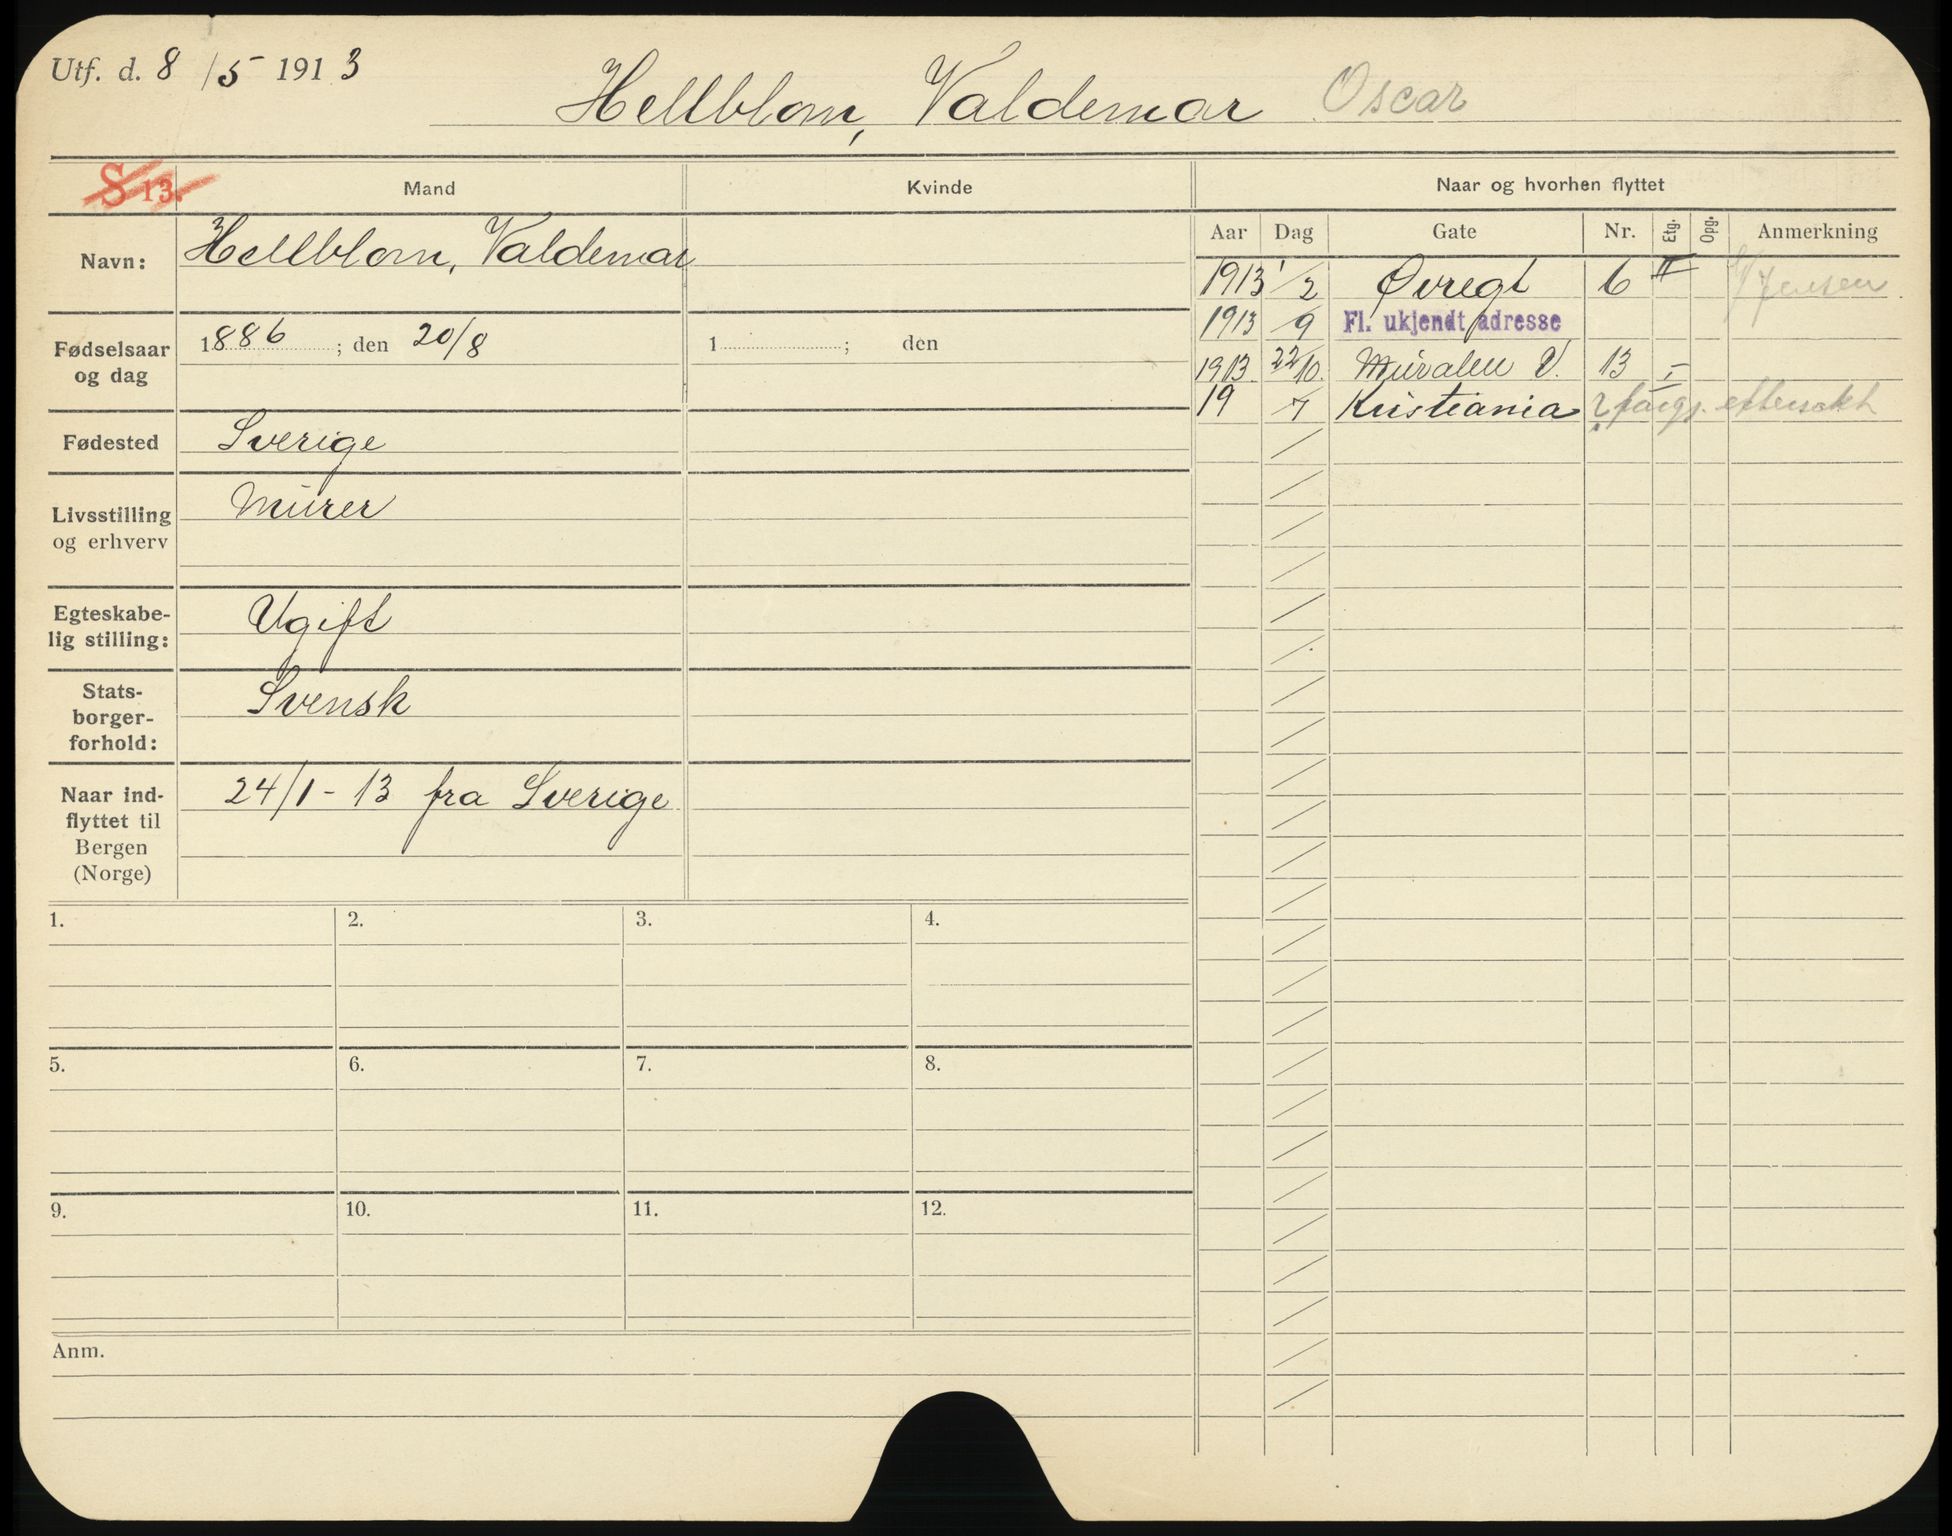 Utf. d. 8/5 1913
Hellblom, Valdemar Oscar
S 13.
Mand
Kvinde
Naar og hvorhen flyttet
Navn:
Hellblom, Valdemar
Fødselsaar og dag
1886 ; den 20/8
1 ; den
Fødested
Sverige
Livsstilling og erhverv
Murer
Egteskabe-
lig stilling:
Ugift
Stats-
borger-
forhold:
Svensk
Naar ind-
flyttet til
Bergen
(Norge)
24/1 - 13 fra Sverige
Aar Dag Gate Nr. Etg. Opg. Anmerkning
1913 1/2 Øvregt 6 II Jensen
1913 /9 Fl. ukjendt adresse
1913 22/10. V. 13
19 /7 Kristiania ? forgj. eftersøkt
1.
2.
3.
4.
5.
6.
7.
8.
9.
10.
11.
12.
Anm.